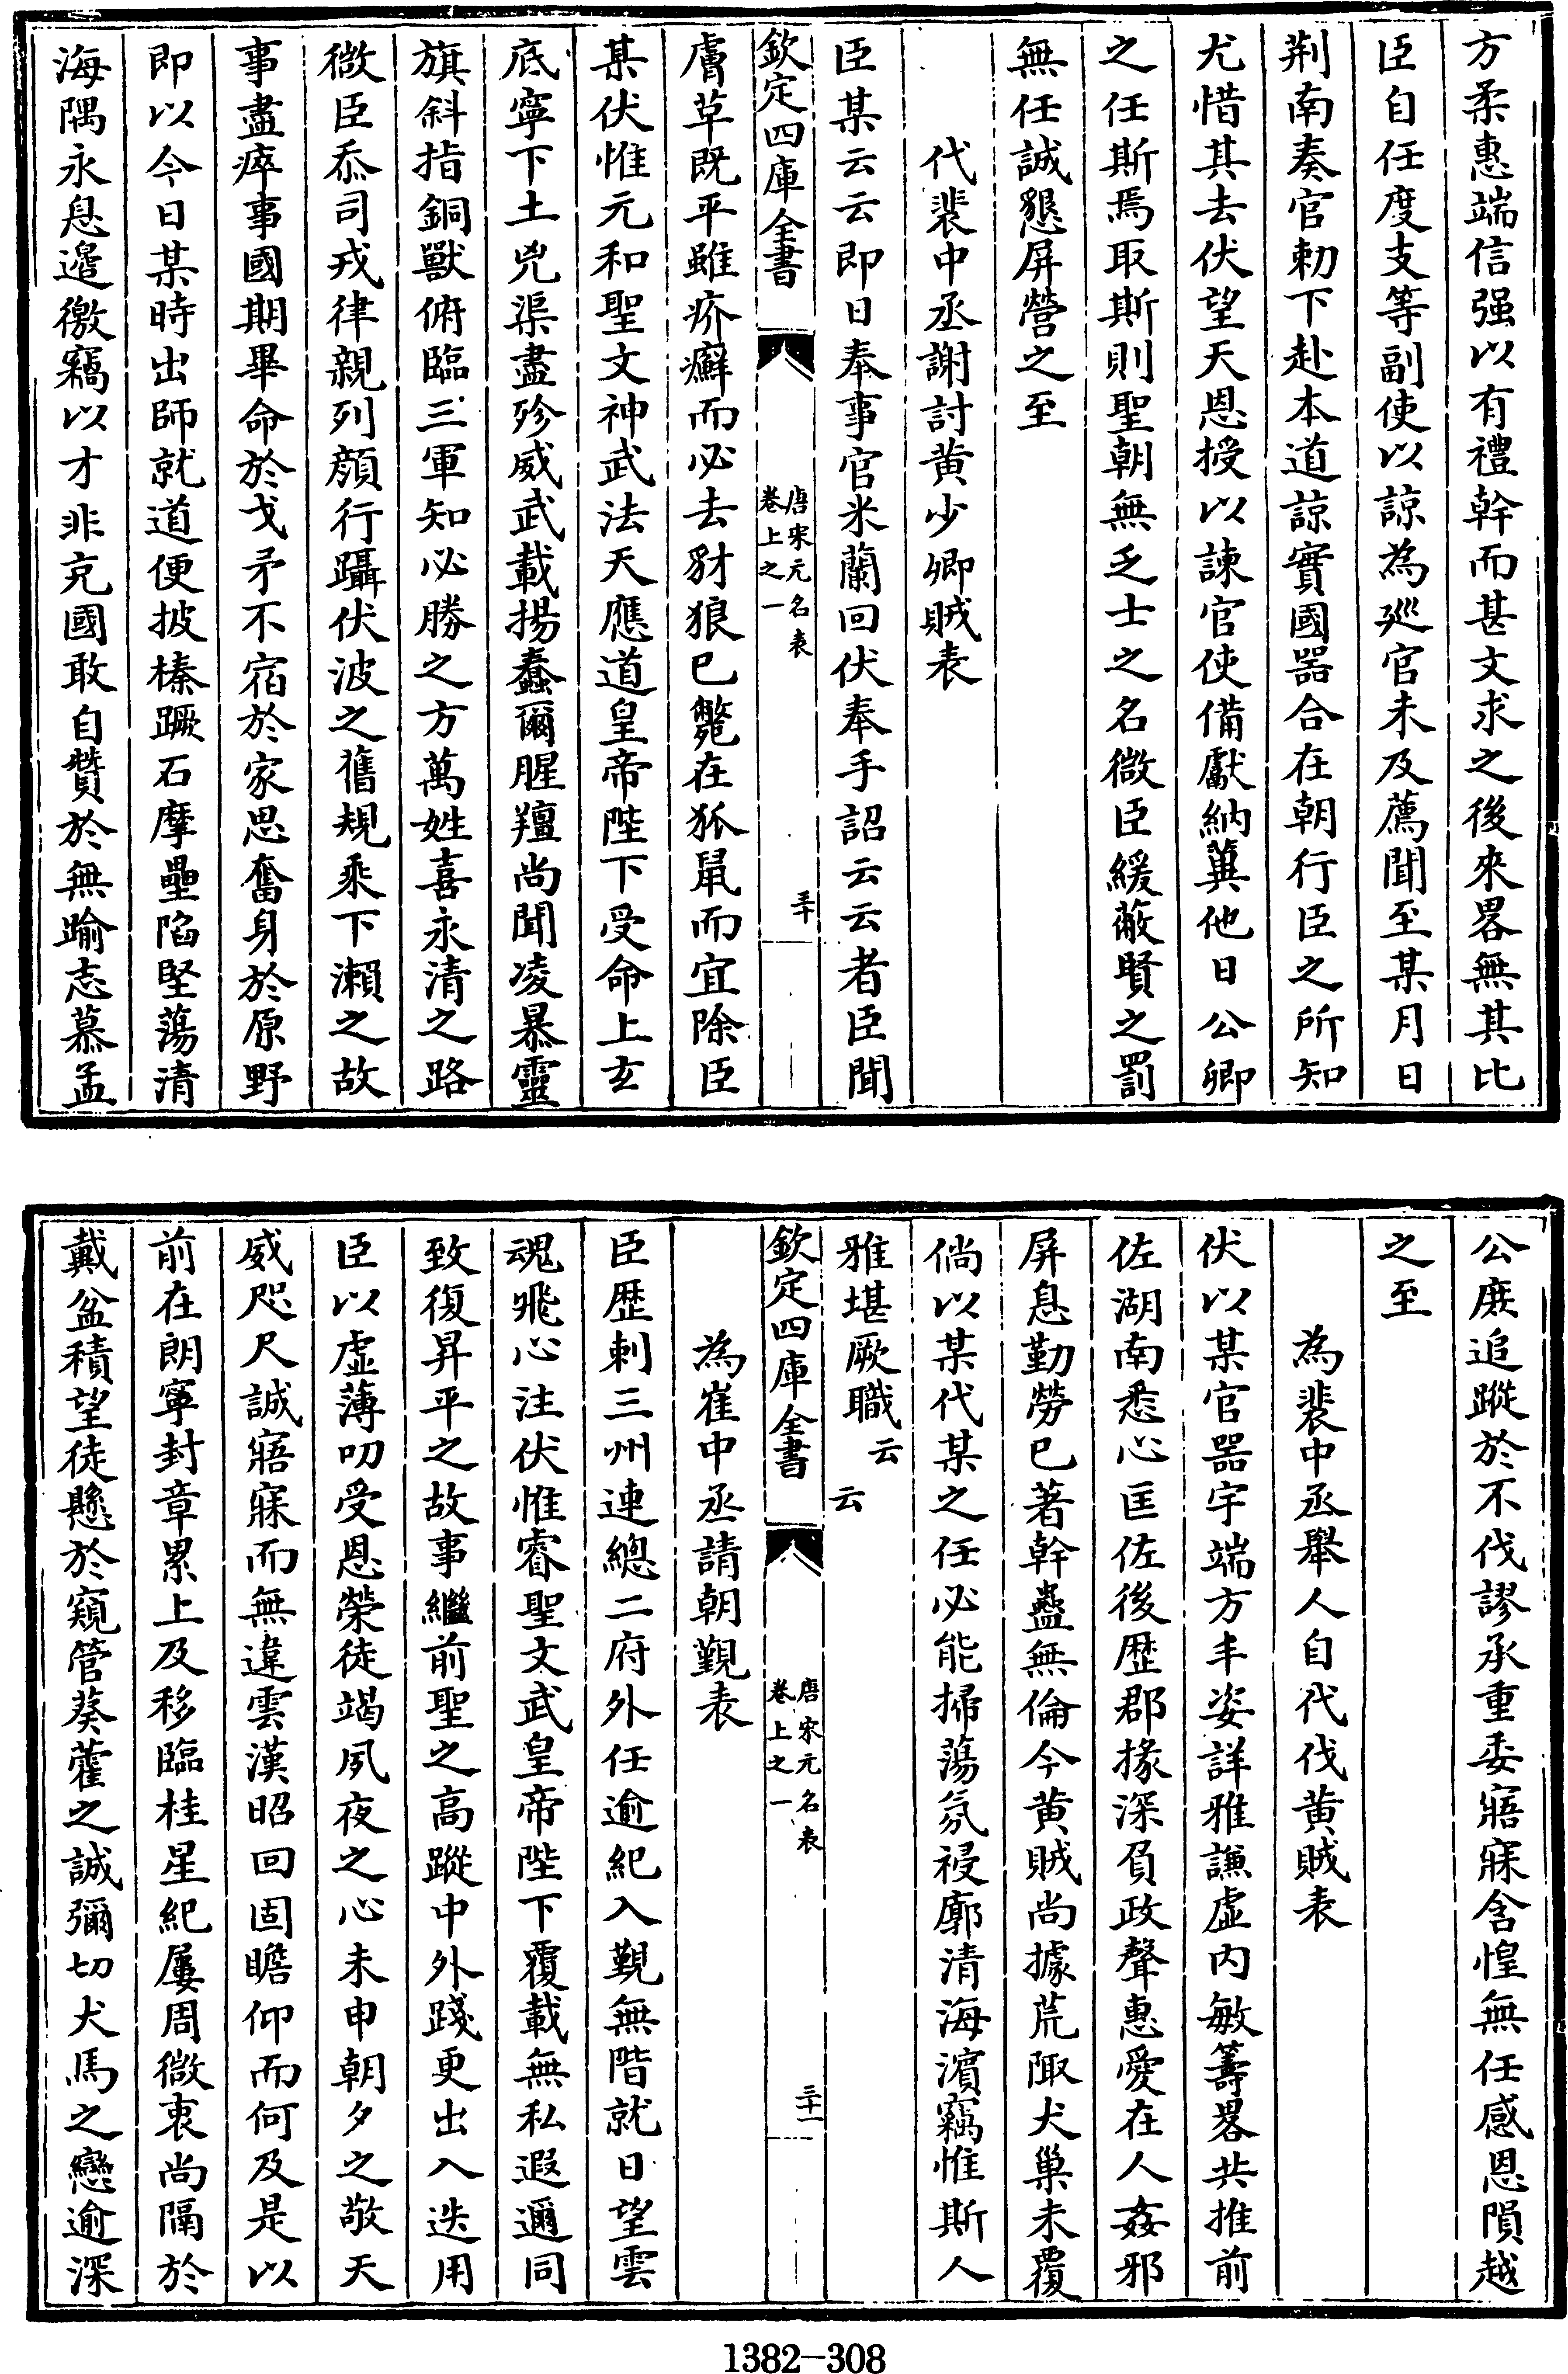 方柔惠端信强以有禮幹而甚文求之後來畧無其比
臣自任度支等副使以諒為廵官未及薦聞至某月日
荆南奏官勅下赴本道諒實國噐合在朝行臣之所知
尤惜其去伏望天恩授以諫官使備獻納冀他日公卿
之任斯焉取斯則聖朝無乏士之名微臣緩蔽賢之罰
無任誠懇屏營之至
代裴中丞謝討黄少卿賊表
臣某云云即日奉事官米蘭回伏奉手詔云云者臣聞
欽定四庫全書
唐宋元名表
卷上之一
三十
膚草既平雖疥癬而必去豺狼已斃在狐鼠而宜除臣
某伏惟元和聖文神武法天應道皇帝陛下受命上玄
底寧下土兇渠盡殄威武載揚蠢爾腥羶尚聞凌暴靈
旗斜指銅獸俯臨三軍知必勝之方萬姓喜永清之路
微臣忝司戎律親列顔行躡伏波之舊規乘下瀨之故
事盡瘁事國期畢命於戈矛不宿於家思奮身於原野
即以今日某時出師就道便披榛蹶石摩壘陷堅蕩清
海隅永息邉徼竊以才非克國敢自贊於無踰志慕孟
公庶追蹤於不伐謬承重委寤寐含惶無任感恩隕越
之至
為裴中丞舉人自代伐黄賊表
伏以某官噐宇端方丰姿詳雅謙虚内敏籌畧共推前
佐湖南悉心匡佐後歴郡掾深負政聲惠愛在人姦邪
屏息勤勞已著幹蠱無倫今黄賊尚據荒陬犬巢未覆
倘以某代某之任必能掃蕩氛祲廓清海濵竊惟斯人
雅堪厥職云云
欽定四庫全書
唐宋元名表
卷上之一
三十一
為崔中丞請朝覲表
臣歴刺三州連總二府外任逾紀入覲無階就日望雲
魂飛心注伏惟睿聖文武皇帝陛下覆載無私遐邇同
致復昇平之故事繼前聖之高蹤中外踐更出入迭用
臣以虚薄叨受恩榮徒竭夙夜之心未申朝夕之敬天
威咫尺誠寤寐而無違雲漢昭回固瞻仰而何及是以
前在朗寧封章累上及移臨桂星紀屢周微衷尚隔於
戴盆積望徒懸於窺管葵藿之誠彌切犬馬之戀逾深
1382-308